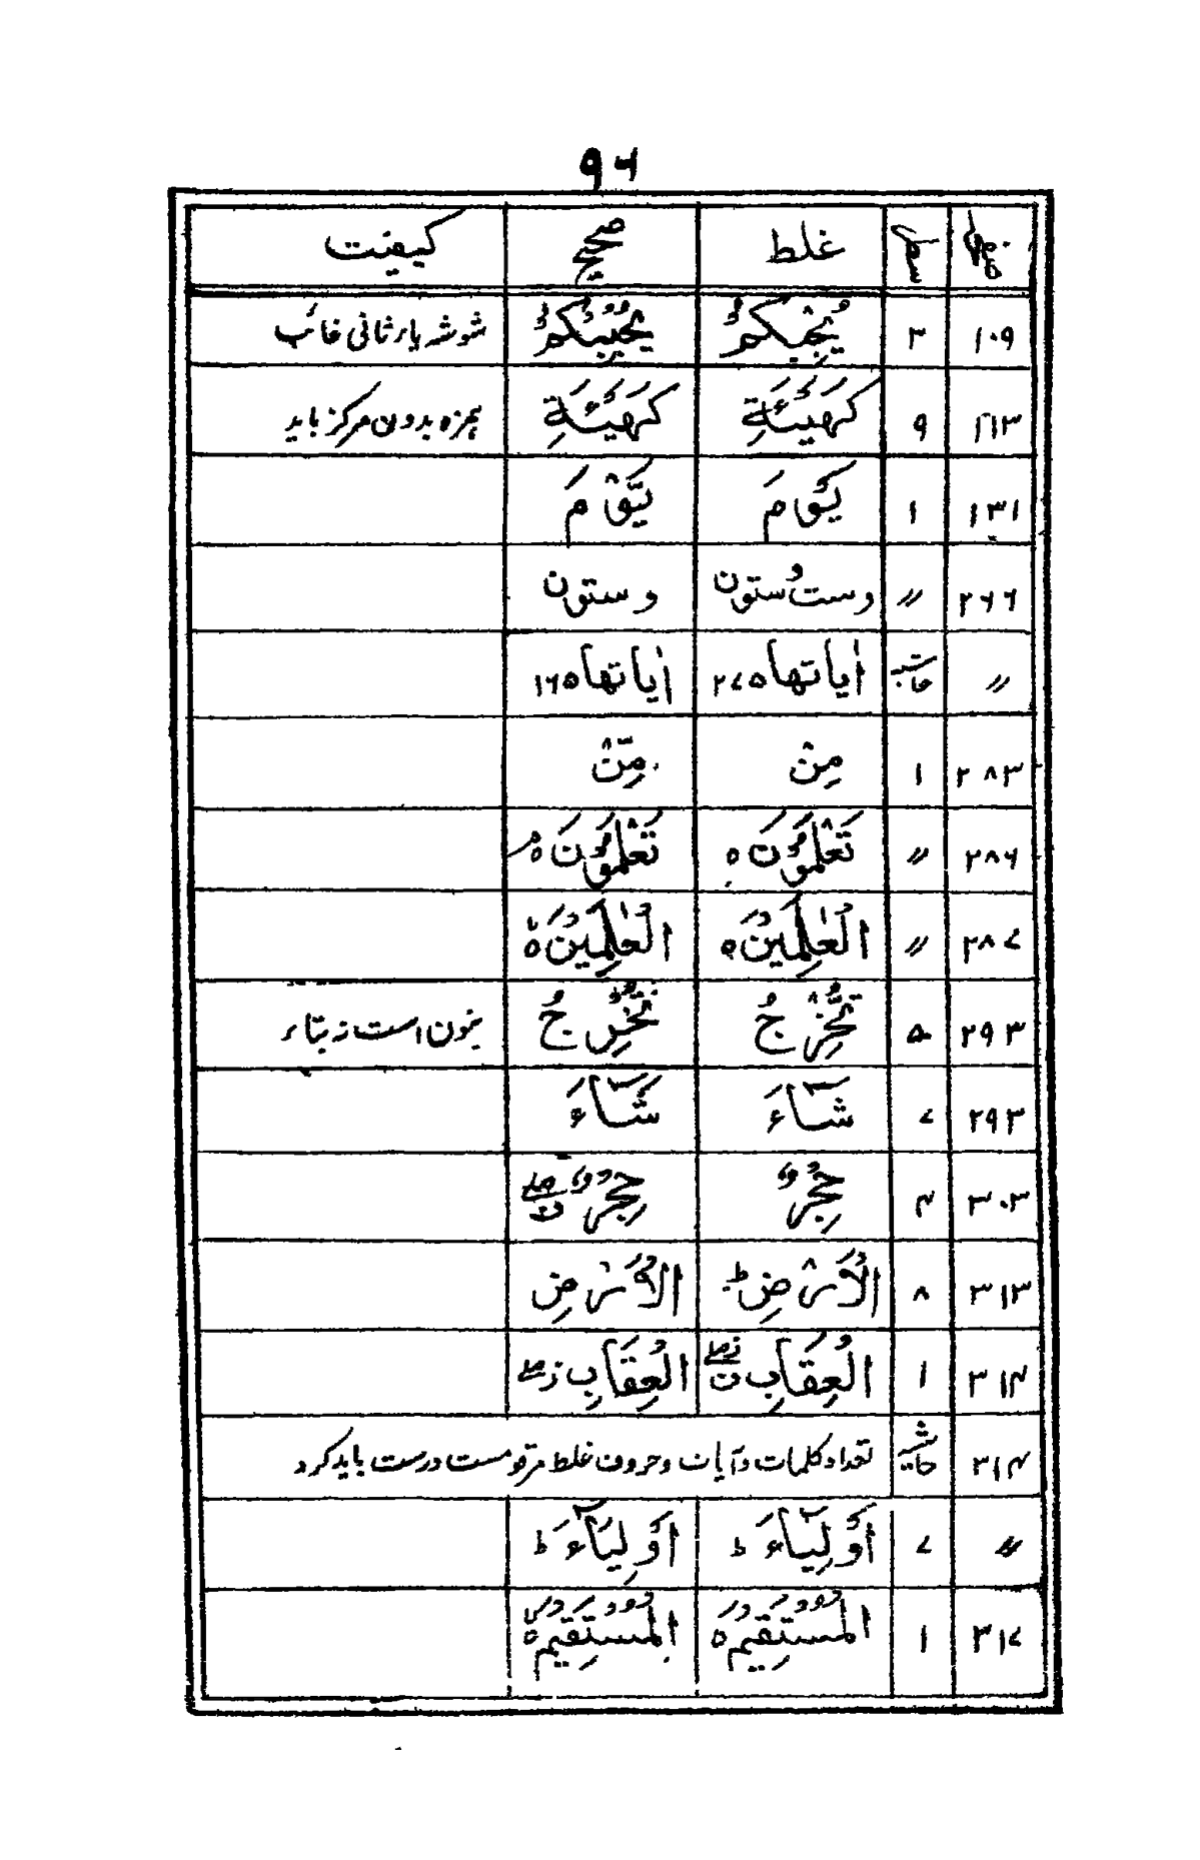 ۹۶
صفحہ سطر غلط صحیح کیفیت
۱۰۹ ۳ یُجِبْکُمْ یُحْبِبْکُمُ شوشہ یاء ثانی غائب
۱۱۳ ۹ کَهَیْئَةِ کَهَیْـَٔةِ ہمزہ بدون مرکز باید
۱۳۱ ۱ یَوْمَ یَّوْمَ
۲۶۶ 〃 وست وستون وستون
〃 حاشیہ اٰیاتها ۲۷۵ اٰیاتها ۱۶۵
۲۸۳ ۱ مِنْ مِّنْ
۲۸۶ 〃 تَعْلَمُوْنَ ہ تَعْلَمُوْنَ ہ
۲۸۷ 〃 الْعٰلَمِیْنَ ہ الْعٰلَمِیْنَ ہ
۲۹۳ ۵ تُخْرِجُ نُخْرِجُ بنون است نہ بتاء
۲۹۳ ۷ شَآءَ شَآءَ
۳۰۳ ۴ حِجْرٌ حِجْرٌ
۳۱۳ ۸ الْاَرْضِ ط الْاَرْضِ
۳۱۴ ۱ الْعِقَابِ الْعِقَابِ
۳۱۴ حاشیہ تعداد کلمات و آیات و حروف غلط مرقومست درست باید کرد
〃 ۷ اَوْلِیَآءَ ط اَوْلِیَآءَ ط
۳۱۷ ۱ الْمُسْتَقِیْمَ ہ الْمُسْتَقِیْمَ ہ